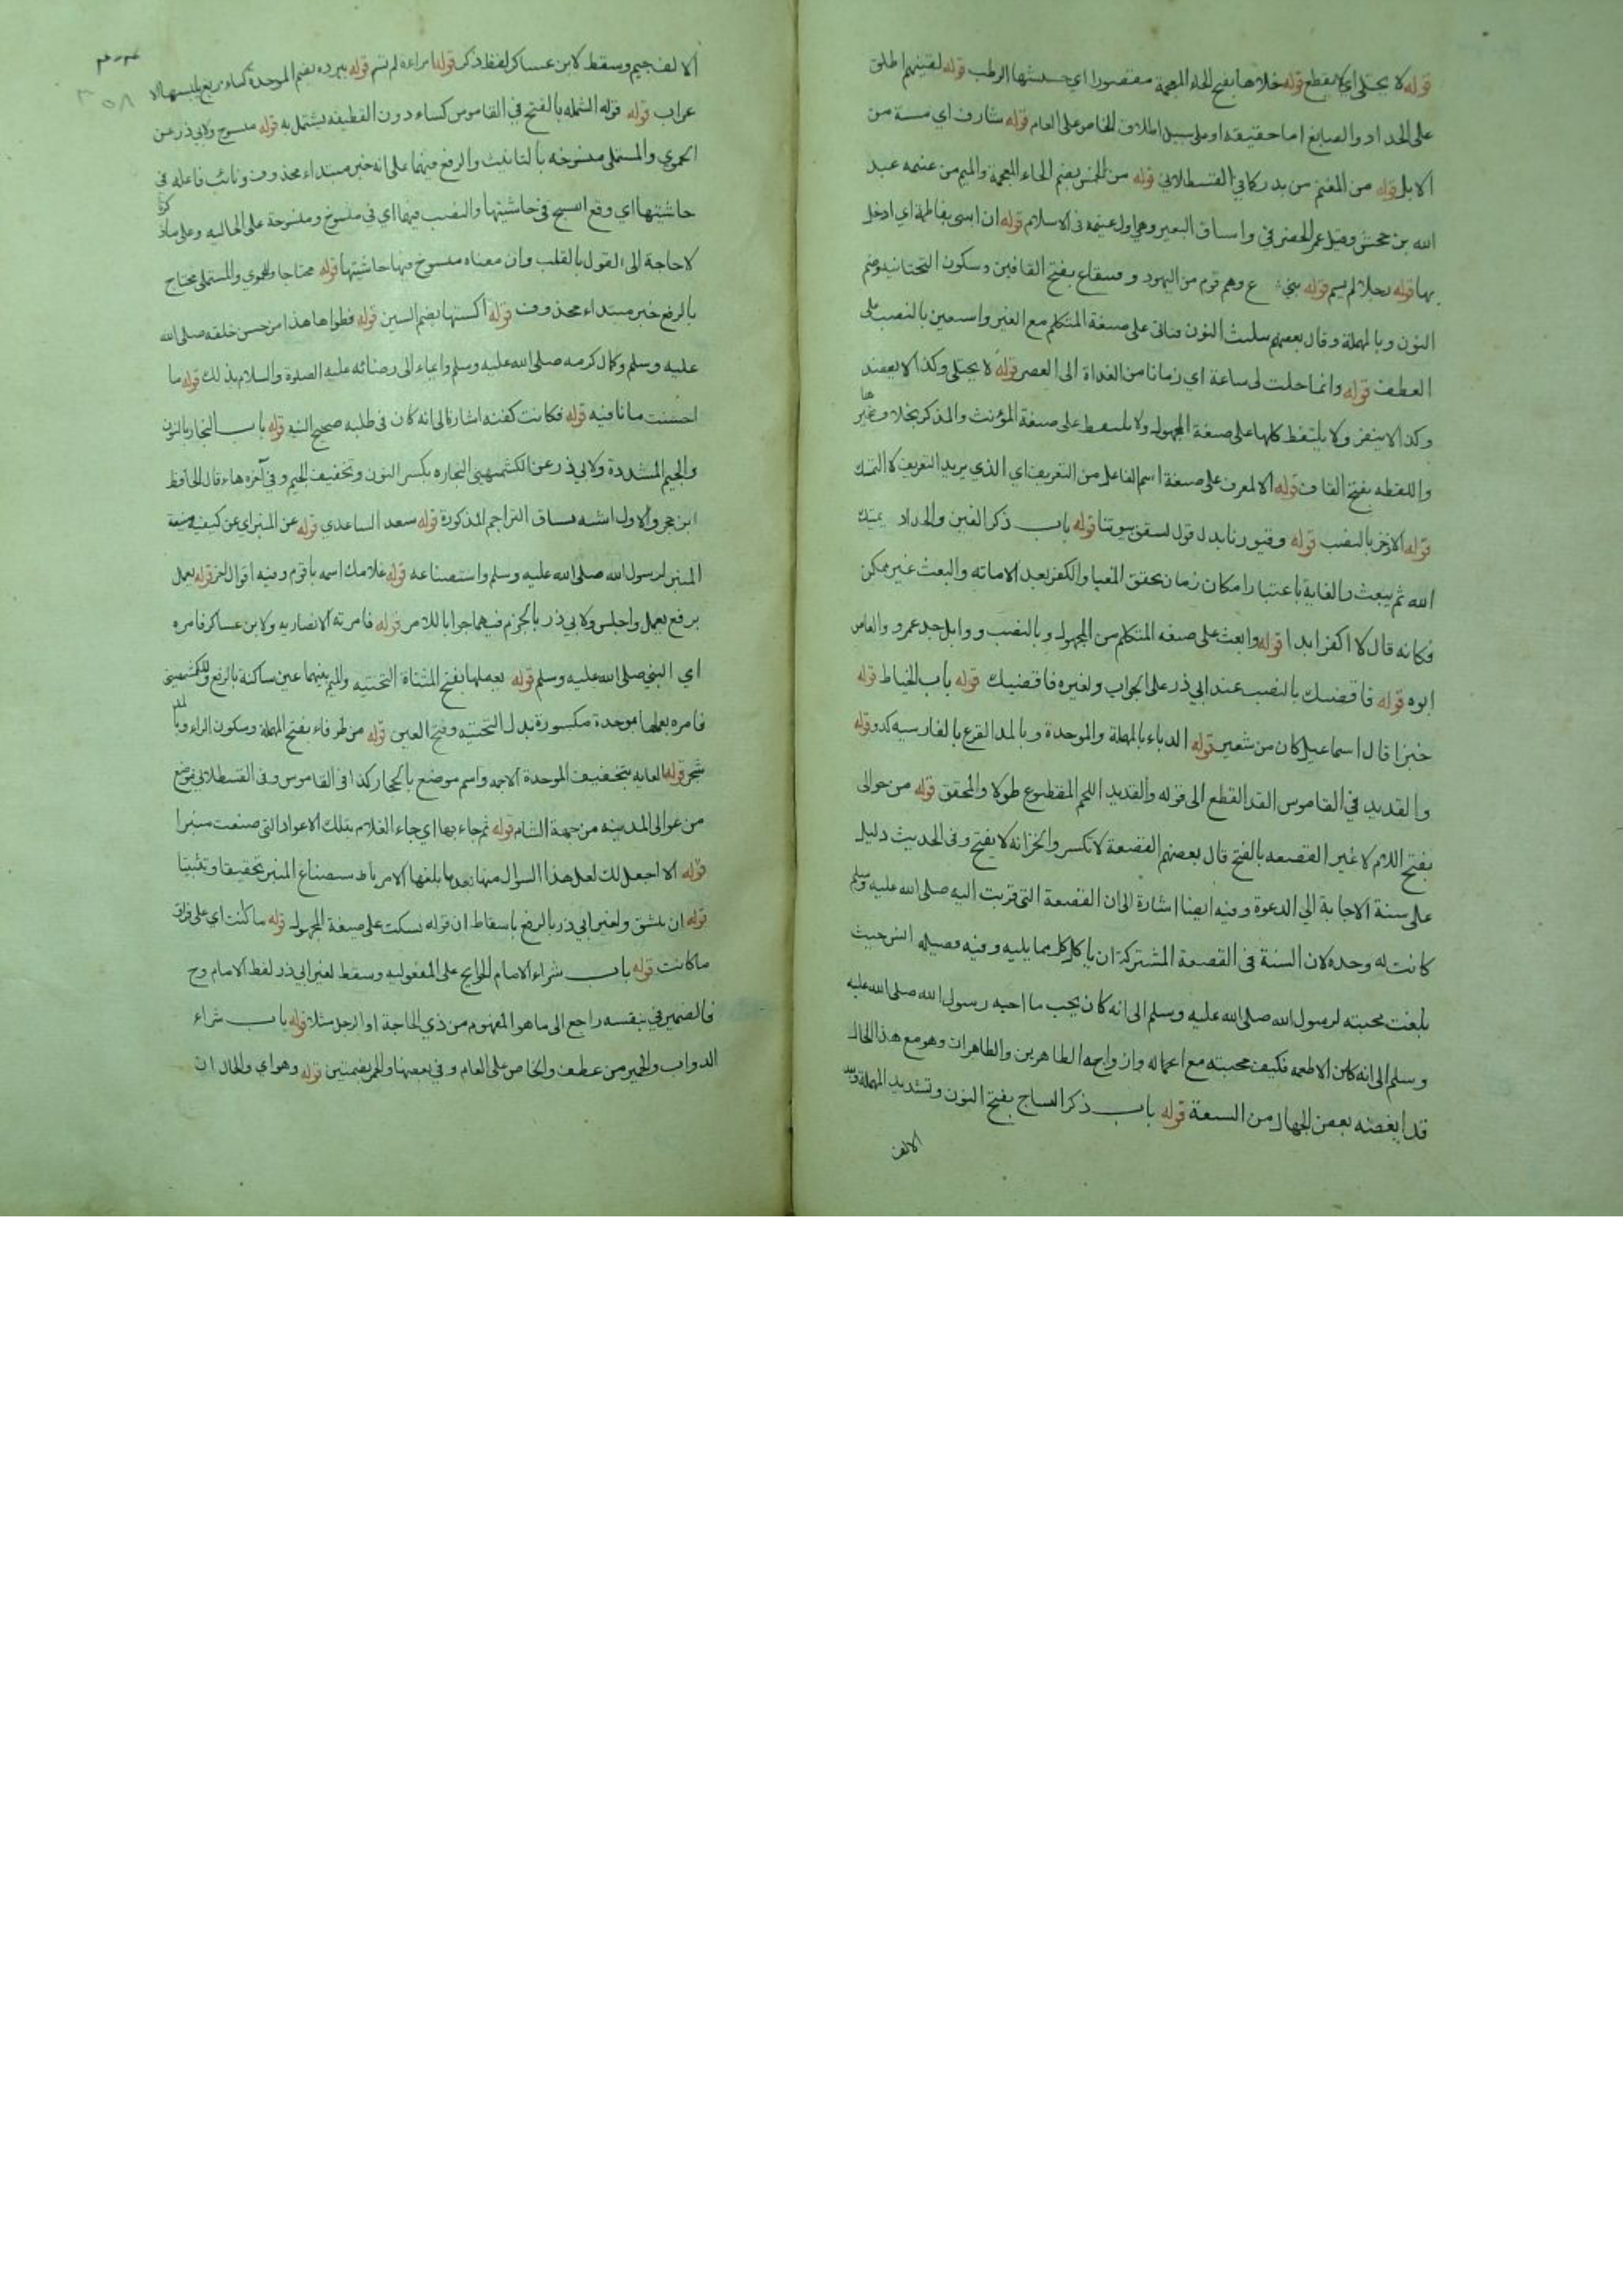 قوله لا يختلى اي لا يقطع قوله خلاها بفتح الخاء المعجمة مقصورا اي حشيشها الرطب قوله لقينهم اطلق
على الحداد والصايغ اما حقيقة او على سبيل اطلاق الخاص على العام قوله شارف اي مسنة من
الابل قوله من المغنم من بدر كما في القسطلاني قوله من الخمس بضم الخاء المعجمة والميم من غنيمه عبد
الله بن جحش وقيل عمر الحضرمي واساق البعير وهي اول غنيمه في الاسلام قوله ان ابتنى بفاطمة اي ادخل
بها قوله رجلا لم يسم قوله بني ع وهم قوم من اليهود و قينقاع بفتح القافين وسكون التحتانيه وضم
النون وبالمهملة وقال بعضهم بتثليث النون فناتي على صيغة المتكلم مع الغير واستعين بالنصب على
العطف قوله وانما حلت لي ساعة اي زمانا من الغداة الى العصر قوله لا يختلى وكذا لا يعضد
وكذا لا ينفر ولا يلتقط كلها على صيغة المجهول ولا يلتقط على صيغة المؤنث والمذكر بخلاف غيرها
واللقطه بفتح القاف قوله الا لمعرف على صيغة اسم الفاعل من التعريف اي الذي يريد التعريف لا التملك
قوله الا الاذخر بالنصب قوله وقبورنا بدل قول لسقف بيوتنا قوله باب ذكر القين والحداد يميتك
الله ثم يبعث والغاية باعتبار امكان زمان تحقق المغيا والكفر بعد الاماته والبعث غير ممكن
فكانه قال لا اكفر ابدا قوله وابعث على صيغه المتكلم من المجهول وبالنصب ووابل جد عمرو والعاص
ابوه قوله فاقضيك بالنصب عند ابي ذر على الجواب ولغيره فاقضيك قوله باب الخياط قوله
خبزا قال اسماعيل كان من شعير قوله الدباء بالمهملة والموحدة وبالمد القرع بالفارسيه كدو قوله
والقديد في القاموس القد القطع الى قوله والقديد اللحم المقطوع طولا والمحقق قوله من حوالى
بفتح اللام لا غير القصعه بالفتح قال بعضهم القصعة لا تكسر والخزانه لا يفتح وفي الحديث دليل
على سنة الاجابة الى الدعوة وفيه ايضا اشارة الى ان القصعة التي قربت اليه صلى الله عليه وسلم
كانت له وحده لان السنة في القصعة المشتركة ان ياكل كل مما يليه وفيه فضيله انس حيث
بلغت محبته لرسول الله صلى الله عليه وسلم الى انه كان يحب ما احبه رسول الله صلى الله عليه
وسلم الى انه كان من الاطعمه فكيف محبته مع اعماله وازواجه الطاهرين والطاهرات وهو مع هذا الحال
قد ابغضه بعض الجهال من السبعة قوله باب ذكر النساج بفتح النون وتشديد المهملة وبعد
الالف
الالف جيم وسقط لابن عساكر لفظ ذكر قوله امراءة لم تسم قوله ببرده بضم الموحدة كساء مربع يلبسها الا
عراب قوله قوله الشمله بالفتح في القاموس كساء دون القطيفه يشتمل به قوله منسوج ولابي ذر عن
الحموي والمستملي منسوجه بالتانيث والرفع فيهما على انه خبر مبتداء محذوف ونائب فاعله في
حاشيتها اي وقع النسج في حاشيتها والنصب فيهما اي في منسوج ومنسوجة على الحاليه وعلى ما ذكرنا
لا حاجة الى القول بالقلب وان معناه منسوج فيها حاشيتها قوله محتاجا وللحموي والمستملي محتاج
بالرفع خبر مبتداء محذوف قوله اكسنيها بضم السين قوله فطواها هذا من حسن خلقه صلى الله
عليه وسلم وكمال كرمه صلى الله عليه وسلم وايماء الى رضائه عليه الصلوة والسلام بذلك قوله ما
احسنت ما نافيه قوله فكانت كفنه اشارة الى انه كان في طلبه صحيح النيه قوله باب النجار بالنون
والجيم المشددة ولابي ذر عن الكشميهني النجاره بكسر النون وتخفيف الجيم وفي آخره هاء قال الحافظ
ابن حجر والاول اشبه بساق التراجم المذكورة قوله سعد الساعدي قوله عن المنبر اي عن كيفيه صنعة
المنبر لرسول الله صلى الله عليه وسلم واستصناعه قوله غلامك اسمه باقوم وفيه اقوال اخر قوله يعمل
برفع يعمل واجلس ولابي ذر بالجزم فيهما جوابا للامر قوله فامرته الانصاريه ولابن عساكر فامره
اي النبي صلى الله عليه وسلم قوله يعملها بفتح المثناة التحتيه والميم بينهما عين ساكنة بالرفع وللكشميهني
فامره بعملها بموحدة مكسورة بدل التحتيه وفتح العين قوله من طرفاء بفتح المهملة وسكون الراء وبالمد
شجر قوله الغابه بتخفيف الموحدة الاجمه واسم موضع بالحجاز كذا في القاموس وفي القسطلاني موضع
من عوالى المدينه من جهة الشام قوله ثم جاء بها اي جاء الغلام بتلك الاعواد التي صنعت منبرا
قوله الا اجعل لك لعل هذا السوال منها بعد ما بلغها الامر باستصناع المنبر تحقيقا وتثبيتا
قوله ان ينشق ولغير ابي ذر بالرفع باسقاط ان قوله نسكت على صيغة المجهول قوله ما كنت اي على فراق
ما كانت قوله باب شراء الامام الحوايج على المفعوليه وسقط لغير ابي ذر لفظ الامام وح
فالضمير في بنفسه راجع الى ما هو المفهوم من ذي الحاجة او الرجل مثلا قوله باب شراء
الدواب والحمير من عطف والخاص على العام وفي بعضها والحمر بضمتين قوله وهو اي والحال ان